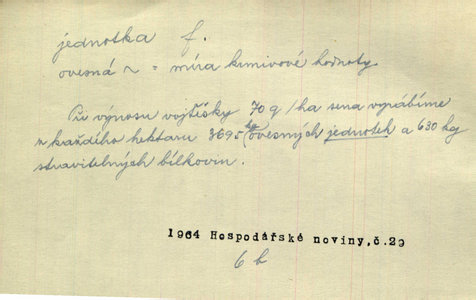 jednotka f.
ovesná ~ = míra krmivové hodnoty
Při výnosu vojtěšky 70 q/ha sena vyrábíme
z každého hektaru 3695 kg ovesných jednotek a 630 kg
stravitelných bílkovin.
1964 Hospodářské noviny, č.29
6 b